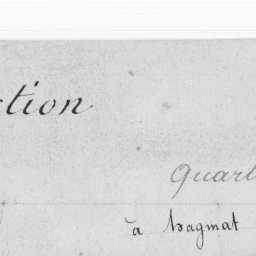 ction
Quart
à hagmat